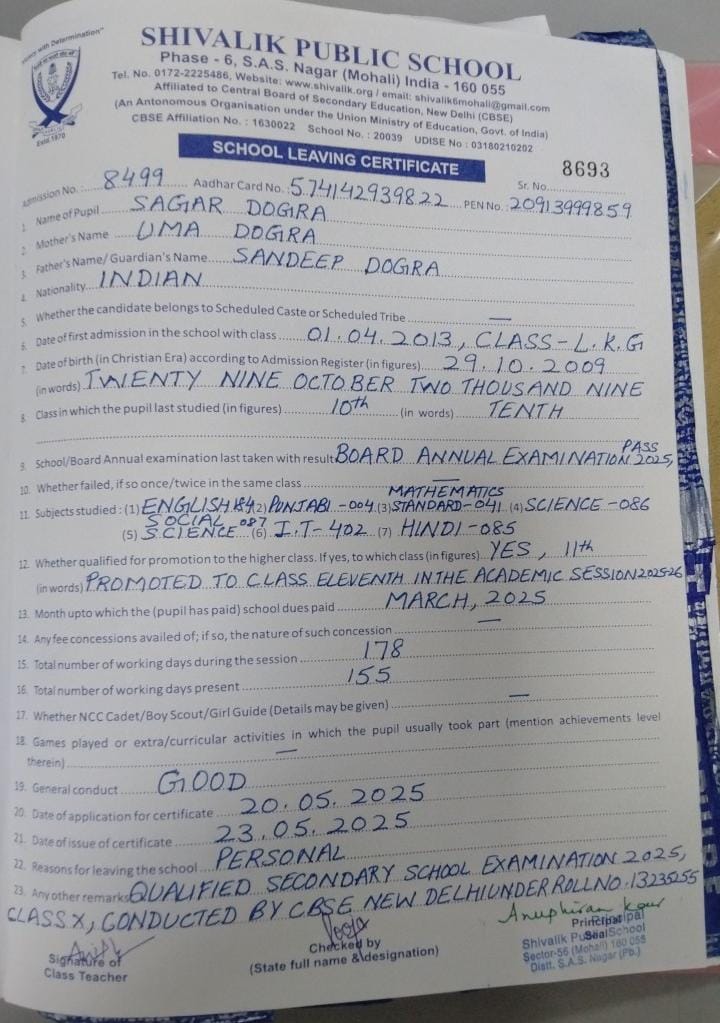 SHIVALIK PUBLIC SCHOOL
Phase - 6, S.A.S. Nagar (Mohali) India - 160 055
Tel. No. 0172-2225486, Website: www.shivalik.org / email: shivalik6mohali@gmail.com
Affiliated to Central Board of Secondary Education, New Delhi (CBSE)
(An Antonomous Organisation under the Union Ministry of Education, Govt. of India)
CBSE Affiliation No. : 1630022 School No. : 20039 UDISE No : 03180210202
with Determination"
Estd.1970
SCHOOL LEAVING CERTIFICATE
8693
Admission No. : 8499 Aadhar Card No. : 574142939822 Sr. No. PEN No. : 20913999859
1. Name of Pupil SAGAR DOGRA
2. Mother's Name UMA DOGRA
3. Father's Name/ Guardian's Name SANDEEP DOGRA
4. Nationality INDIAN
5. Whether the candidate belongs to Scheduled Caste or Scheduled Tribe —
6. Date of first admission in the school with class 01.04.2013, CLASS-L.K.G
7. Date of birth (in Christian Era) according to Admission Register (in figures) 29.10.2009
(in words) TWENTY NINE OCTOBER TWO THOUSAND NINE
8. Class in which the pupil last studied (in figures) 10th (in words) TENTH
9. School/Board Annual examination last taken with result BOARD ANNUAL EXAMINATION 2025, PASS
10. Whether failed, if so once/twice in the same class —
11. Subjects studied : (1) ENGLISH 184 (2) PUNJABI -004 (3) MATHEMATICS STANDARD-041 (4) SCIENCE -086
(5) SOCIAL SCIENCE 087 (6) I.T-402 (7) HINDI -085
12. Whether qualified for promotion to the higher class. If yes, to which class (in figures) YES, 11th
(in words) PROMOTED TO CLASS ELEVENTH IN THE ACADEMIC SESSION 2025-26
13. Month upto which the (pupil has paid) school dues paid MARCH, 2025
14. Any fee concessions availed of; if so, the nature of such concession —
15. Total number of working days during the session 178
16. Total number of working days present 155
17. Whether NCC Cadet/Boy Scout/Girl Guide (Details may be given) —
18. Games played or extra/curricular activities in which the pupil usually took part (mention achievements level
therein) —
19. General conduct GOOD
20. Date of application for certificate 20.05.2025
21. Date of issue of certificate 23.05.2025
22. Reasons for leaving the school PERSONAL
23. Any other remarks QUALIFIED SECONDARY SCHOOL EXAMINATION 2025,
CLASS X, CONDUCTED BY CBSE NEW DELHI UNDER ROLL NO. 13235255
Pooja
Anuphiran Kaur
Signature of
Class Teacher
Checked by
(State full name & designation)
Principal
Seal
Principal
Shivalik Public School
Sector-56 (Mohali) 160 055
Distt. S.A.S. Nagar (Pb.)